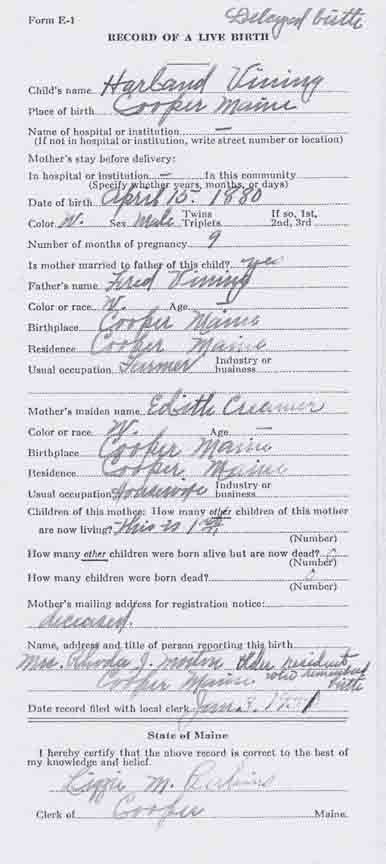 Form E-1 Delayed birth
RECORD OF A LIVE BIRTH
Child's name Harland Vining
Place of birth Cooper Maine
Name of hospital or institution —
(If not in hospital or institution, write street number or location)
Mother's stay before delivery:
In hospital or institution — In this community
(Specify whether years, months, or days)
Date of birth April 15. 1880
Color W. Sex Male Twins Triplets If so, 1st, 2nd, 3rd
Number of months of pregnancy 9
Is mother married to father of this child? yes
Father's name Fred Vining
Color or race W. Age —
Birthplace Cooper Maine
Residence Cooper Maine
Usual occupation Farmer Industry or business
Mother's maiden name Edith Creamer
Color or race W. Age —
Birthplace Cooper Maine
Residence Cooper Maine
Usual occupation Housewife Industry or business
Children of this mother: How many other children of this mother
are now living? This is 1st
(Number)
How many other children were born alive but are now dead? 0
(Number)
How many children were born dead? 0
(Number)
Mother's mailing address for registration notice:
deceased.
Name, address and title of person reporting this birth
Mrs. Rhoda J. Morton older resident
Cooper Maine who remembered
birth
Date record filed with local clerk Jan. 3.
State of Maine
I hereby certify that the above record is correct to the best of
my knowledge and belief.
Lizzie M.
Clerk of Cooper Maine.